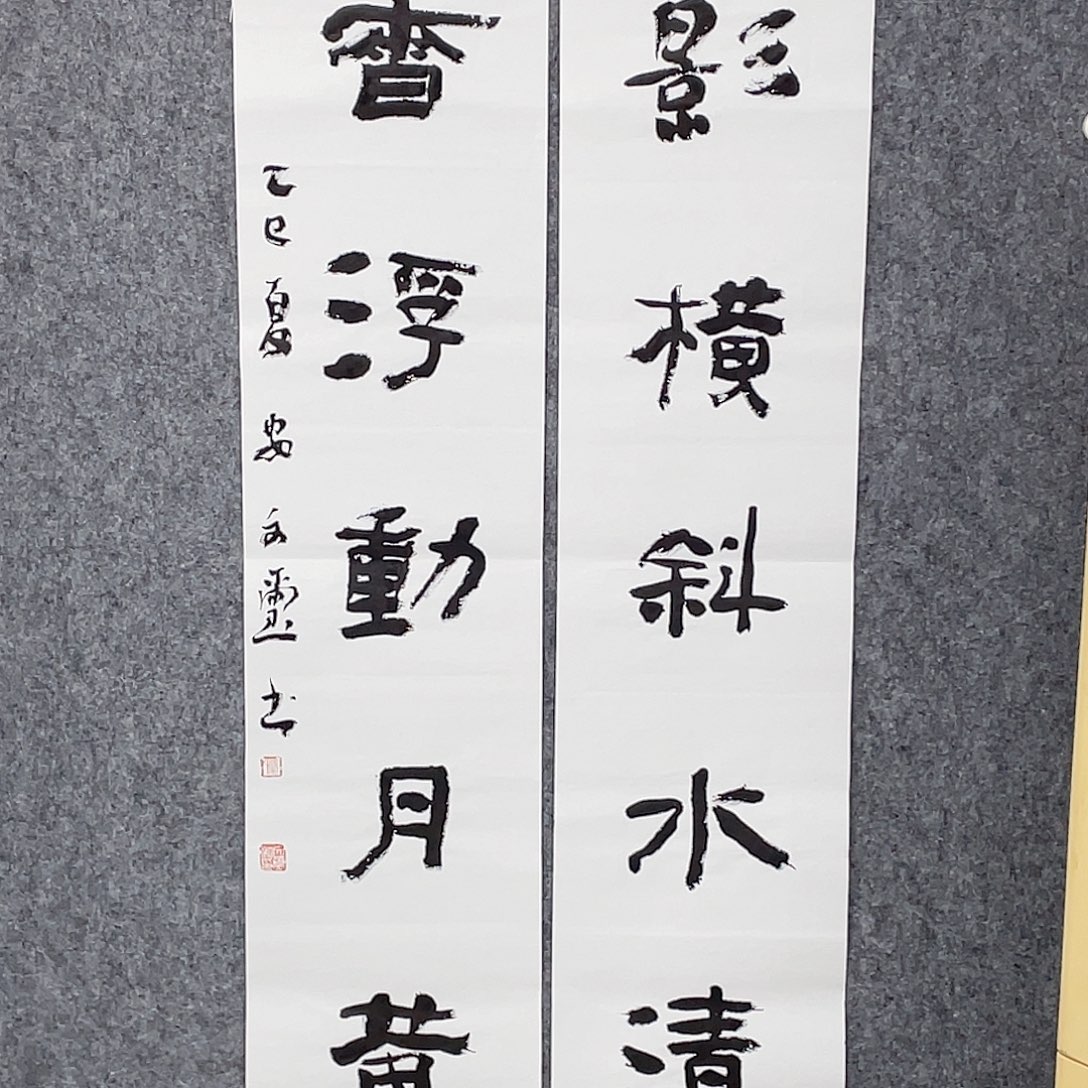 影橫斜水清
香浮動月黃
乙巳夏安文靈书